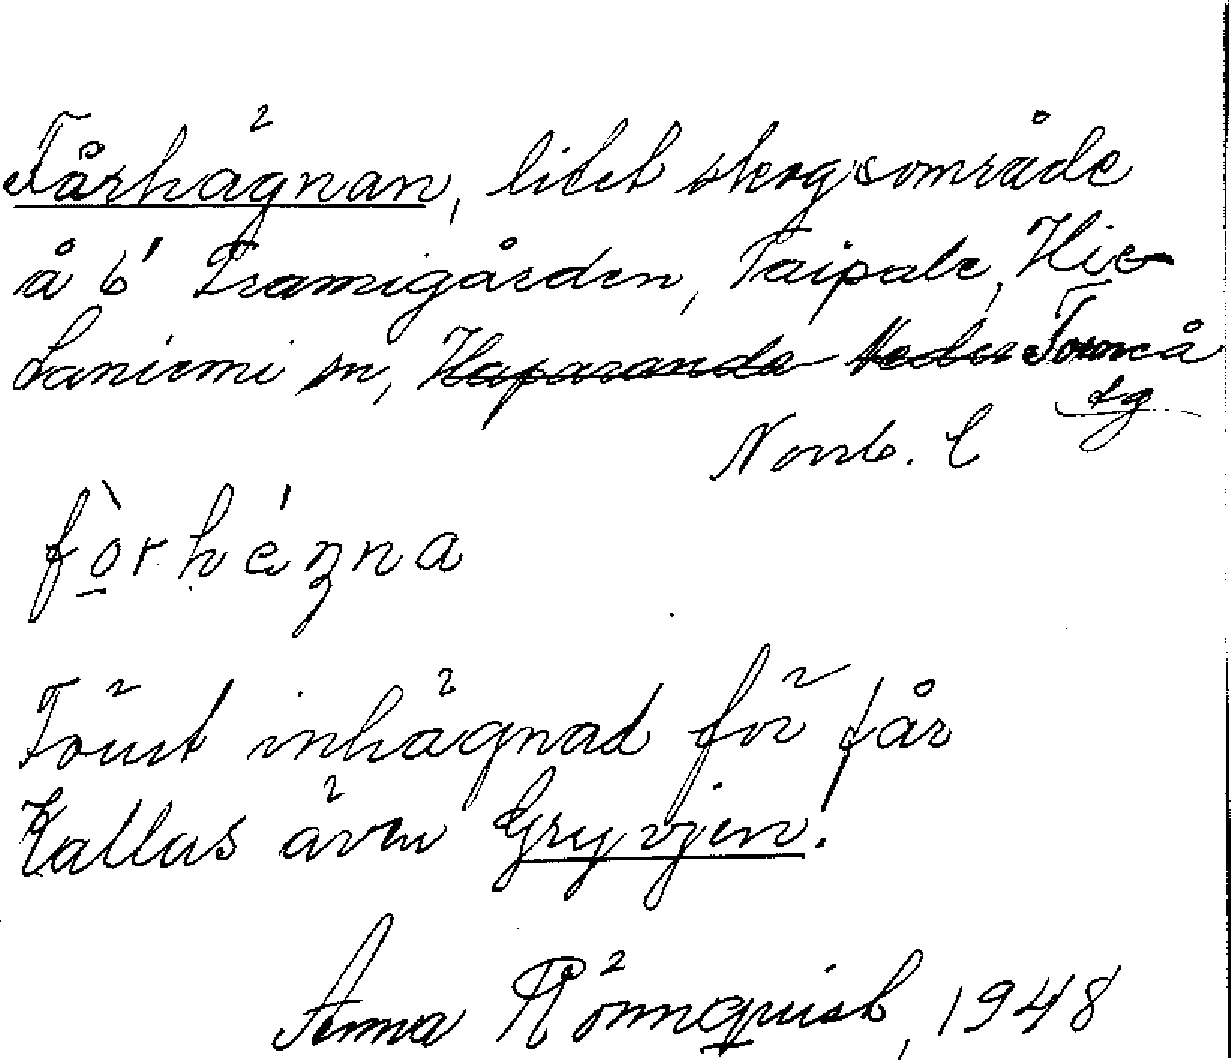 Fårhägnan, litet skogsområde
å 6¹ Pramigården, Taipale, Hie-
taniemi sn, Haparanda Neder Torneå
tg
Norrb. l
fòrhéʒna
Förut inhägnad för får
Kallas även Gryvjen.
Anna Rönnquist, 1948